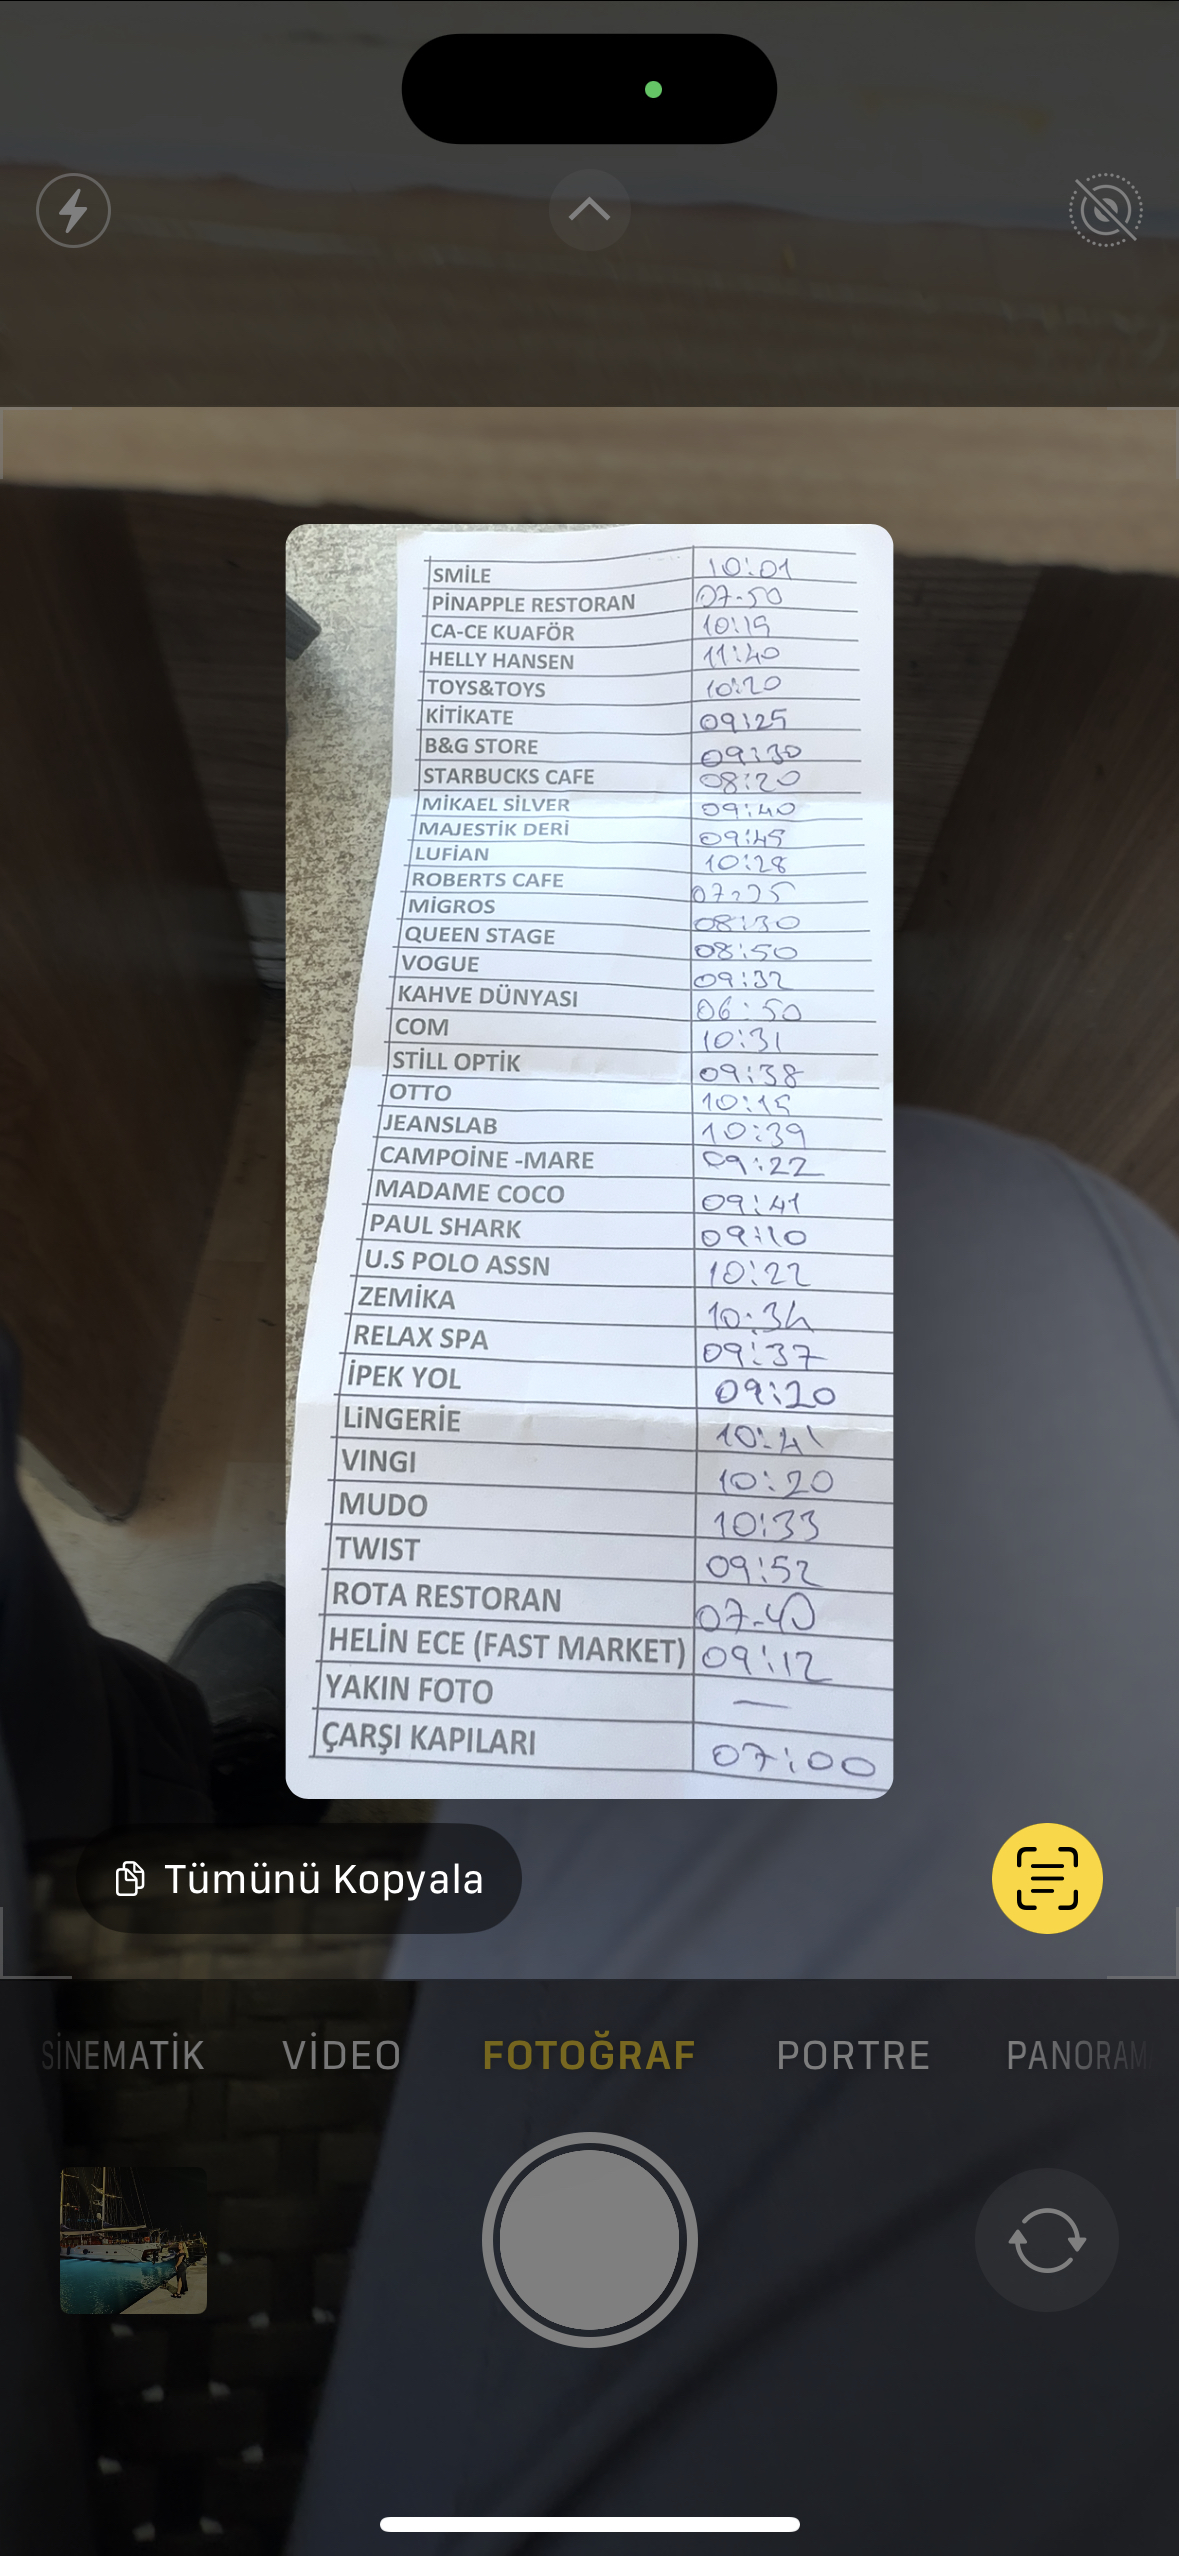 SMİLE 10:01
PİNAPPLE RESTORAN 07-50
CA-CE KUAFÖR 10:15
HELLY HANSEN 11:40
TOYS&TOYS 10:20
KİTİKATE 09:25
B&G STORE 09:30
STARBUCKS CAFE 08:20
MİKAEL SİLVER 09:40
MAJESTİK DERİ 09:45
LUFİAN 10:28
ROBERTS CAFE
MİGROS 08:30
QUEEN STAGE 08:50
VOGUE 09:32
KAHVE DÜNYASI 06:50
COM 10:31
STİLL OPTİK 09:38
OTTO 10:15
JEANSLAB 10:39
CAMPOİNE -MARE 09:22
MADAME COCO 09:41
PAUL SHARK 09:10
U.S POLO ASSN 10:22
ZEMİKA 10:34
RELAX SPA 09:37
İPEK YOL 09:20
LiNGERİE 10:41
VINGI 10:20
MUDO 10:33
TWIST 09:52
ROTA RESTORAN 07-40
HELİN ECE (FAST MARKET) 09:12
YAKIN FOTO —
ÇARŞI KAPILARI 07:00
Tümünü Kopyala
SİNEMATİK VİDEO FOTOĞRAF PORTRE PANORAM